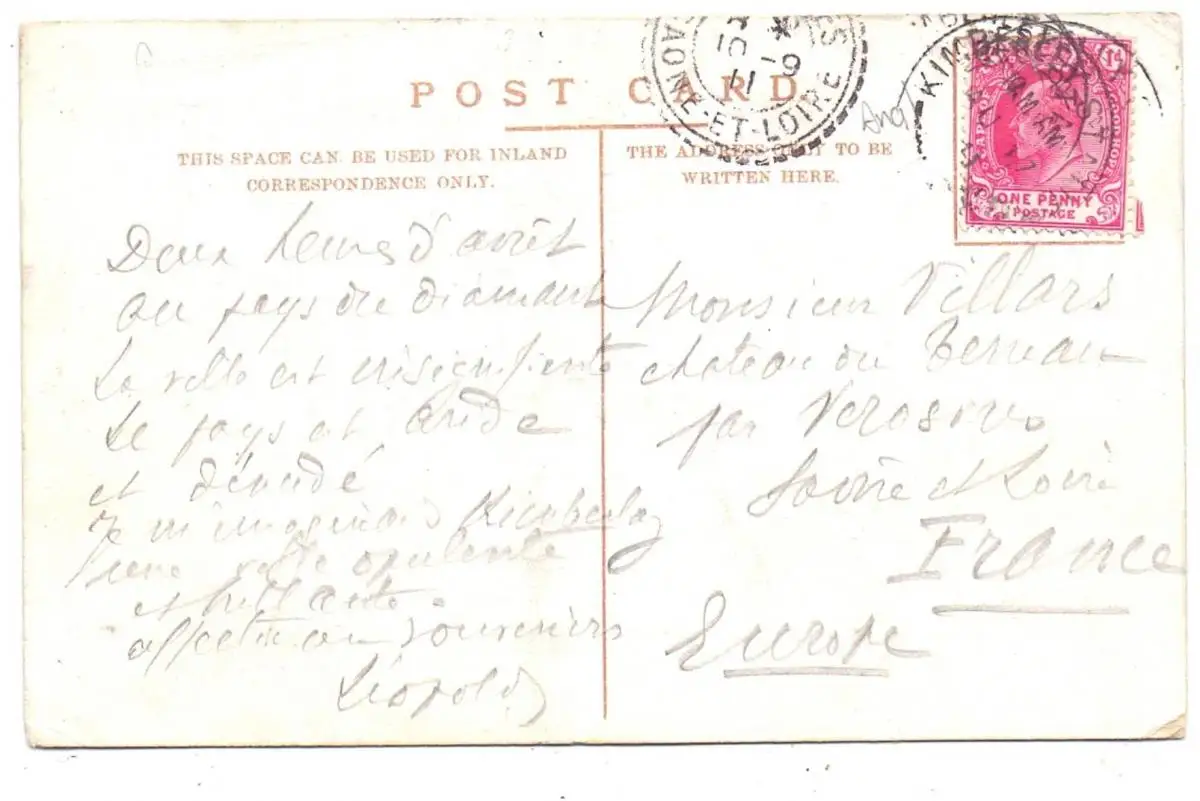 POST CARD
THIS SPACE CAN BE USED FOR INLAND
CORRESPONDENCE ONLY.
THE ADDRESS ONLY TO BE
WRITTEN HERE.
SAONE-ET-LOIRE
10 -9
11
KIMBERLEY
CAPE OF GOOD HOPE
1D
ONE PENNY
POSTAGE
Deux heures d'arrêt
au pays du diamant
La ville est insignifiante
Le pays est aride
et dénudé
Je m'imaginais Kimberley
une ville opulente
et brillante.
affectueux souvenirs
Léopold
Monsieur Villars
chateau du Terreau
par Verosvres
Saône et Loire
France
Europe